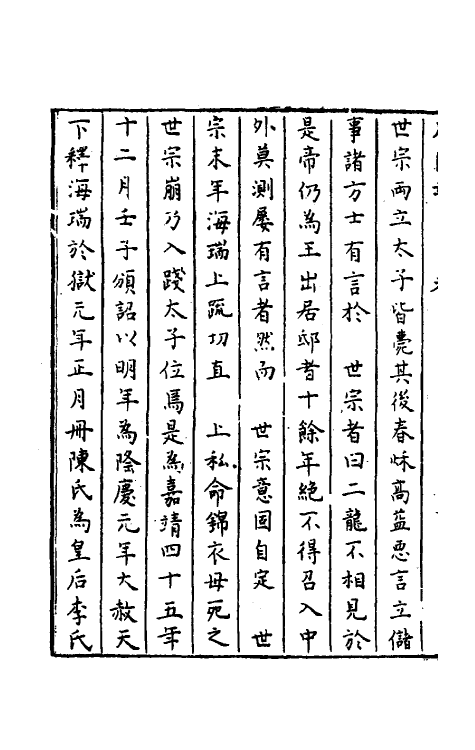 世宗両立太子皆薨其後春秌高益惡言立儲
事諸方士有言於　世宗者曰二龍不相見於
是帝仍為王出居邸者十餘年絕不得召入中
外莫測屢有言者然而　世宗意固自定　世
宗末年海瑞上疏切直　上私命錦衣毋死之
世宗崩乃入踐太子位焉是為嘉靖四十五年
十二月壬子頒詔以明年為隆慶元年大赦天
下釋海瑞於獄元年正月冊陳氏為皇后李氏